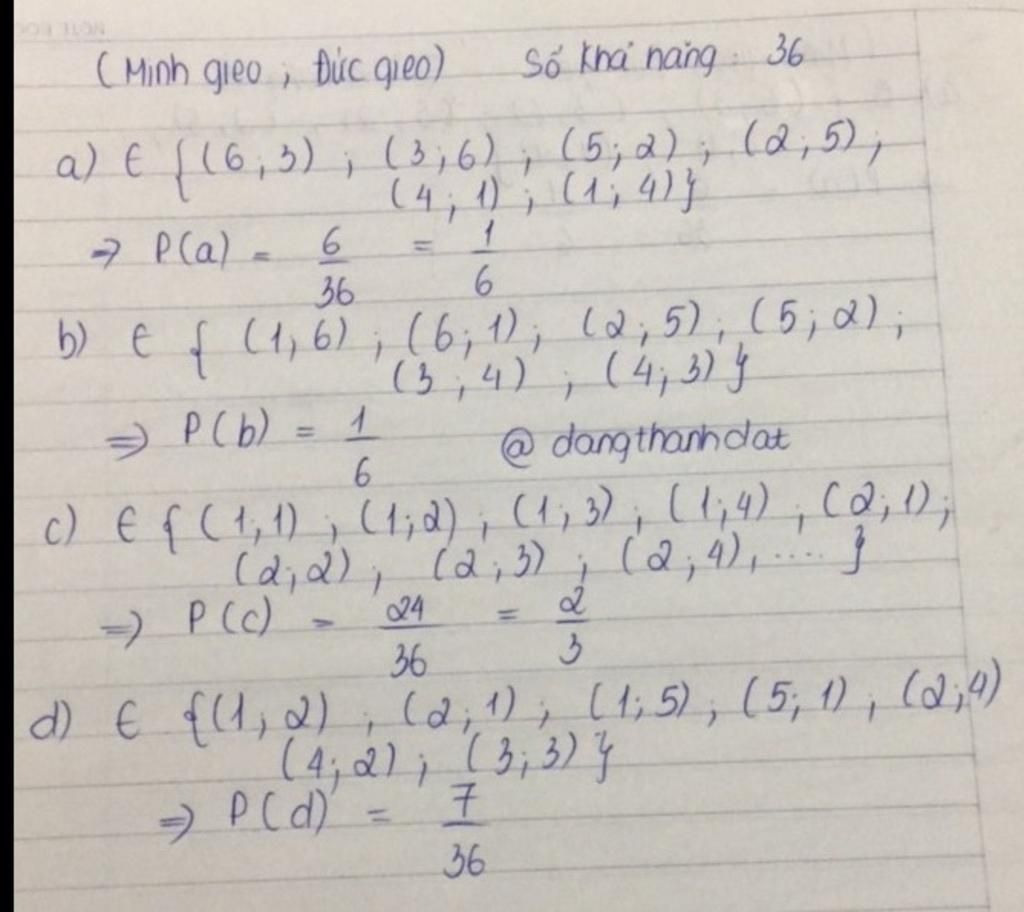 (Minh gieo, Đức gieo) Số khả năng: 36
a) ∈ {(6;3); (3;6); (5;2); (2;5);
(4;1); (1;4)}
⇒ P(a) = 6/36 = 1/6
b) ∈ {(1;6); (6;1); (2;5); (5;2);
(3;4); (4;3)}
⇒ P(b) = 1/6 @dangthanhdat
c) ∈ {(1;1); (1;2); (1;3); (1;4); (2;1);
(2;2); (2;3); (2;4), .... }
⇒ P(c) = 24/36 = 2/3
d) ∈ {(1;2); (2;1); (1;5); (5;1); (2;4)
(4;2); (3;3)}
⇒ P(d) = 7/36